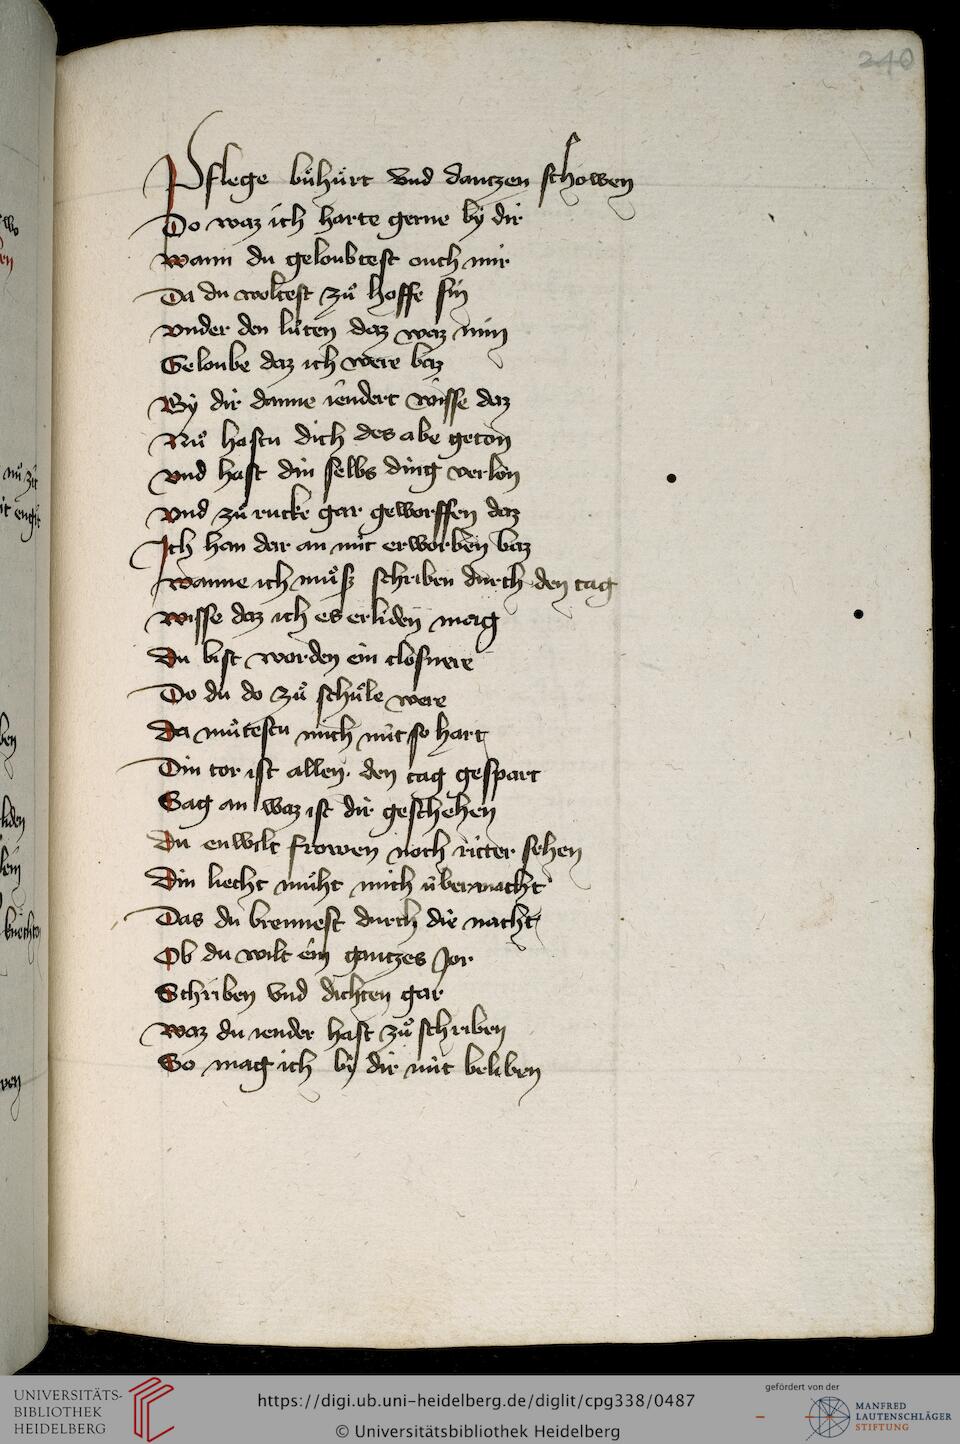 240
Pflege bühürt vnd dantzen schowen
Do waz ich harte gerne bÿ dir
wann du geloubtest ouch mir
Da du woltest zů hoffe sin
vnder den lüten daz waz min
Geloube daz ich were baz
Bÿ dir danne iendert wisse daz
Nů hastu dich des abe geton
vnd hast din selbs ding verlon
vnd zů rucke gar geworffen daz
Ich han dar an nit erworben baz
wanne ich můsz schriben durch den tag
wisse daz ich es erliden mag
du bist worden ein closnere
Do du do zů schůle were
da můtestu mich nit so hart
Din tor ist allen den tag gespart
Sag an waz ist dir geschehen
du enwilt frowen noch ritter sehen
din liecht müht mich übermacht
Das du brennest durch die nacht
Ob du wilt ein gantzes Jor
Schriben vnd dichten gar
waz du iender hast zů schriben
So mag ich bÿ dir nit beliben
UNIVERSITÄTS-
BIBLIOTHEK
HEIDELBERG
https://digi.ub.uni-heidelberg.de/diglit/cpg338/0487
© Universitätsbibliothek Heidelberg
gefördert von der
MANFRED
LAUTENSCHLÄGER
STIFTUNG